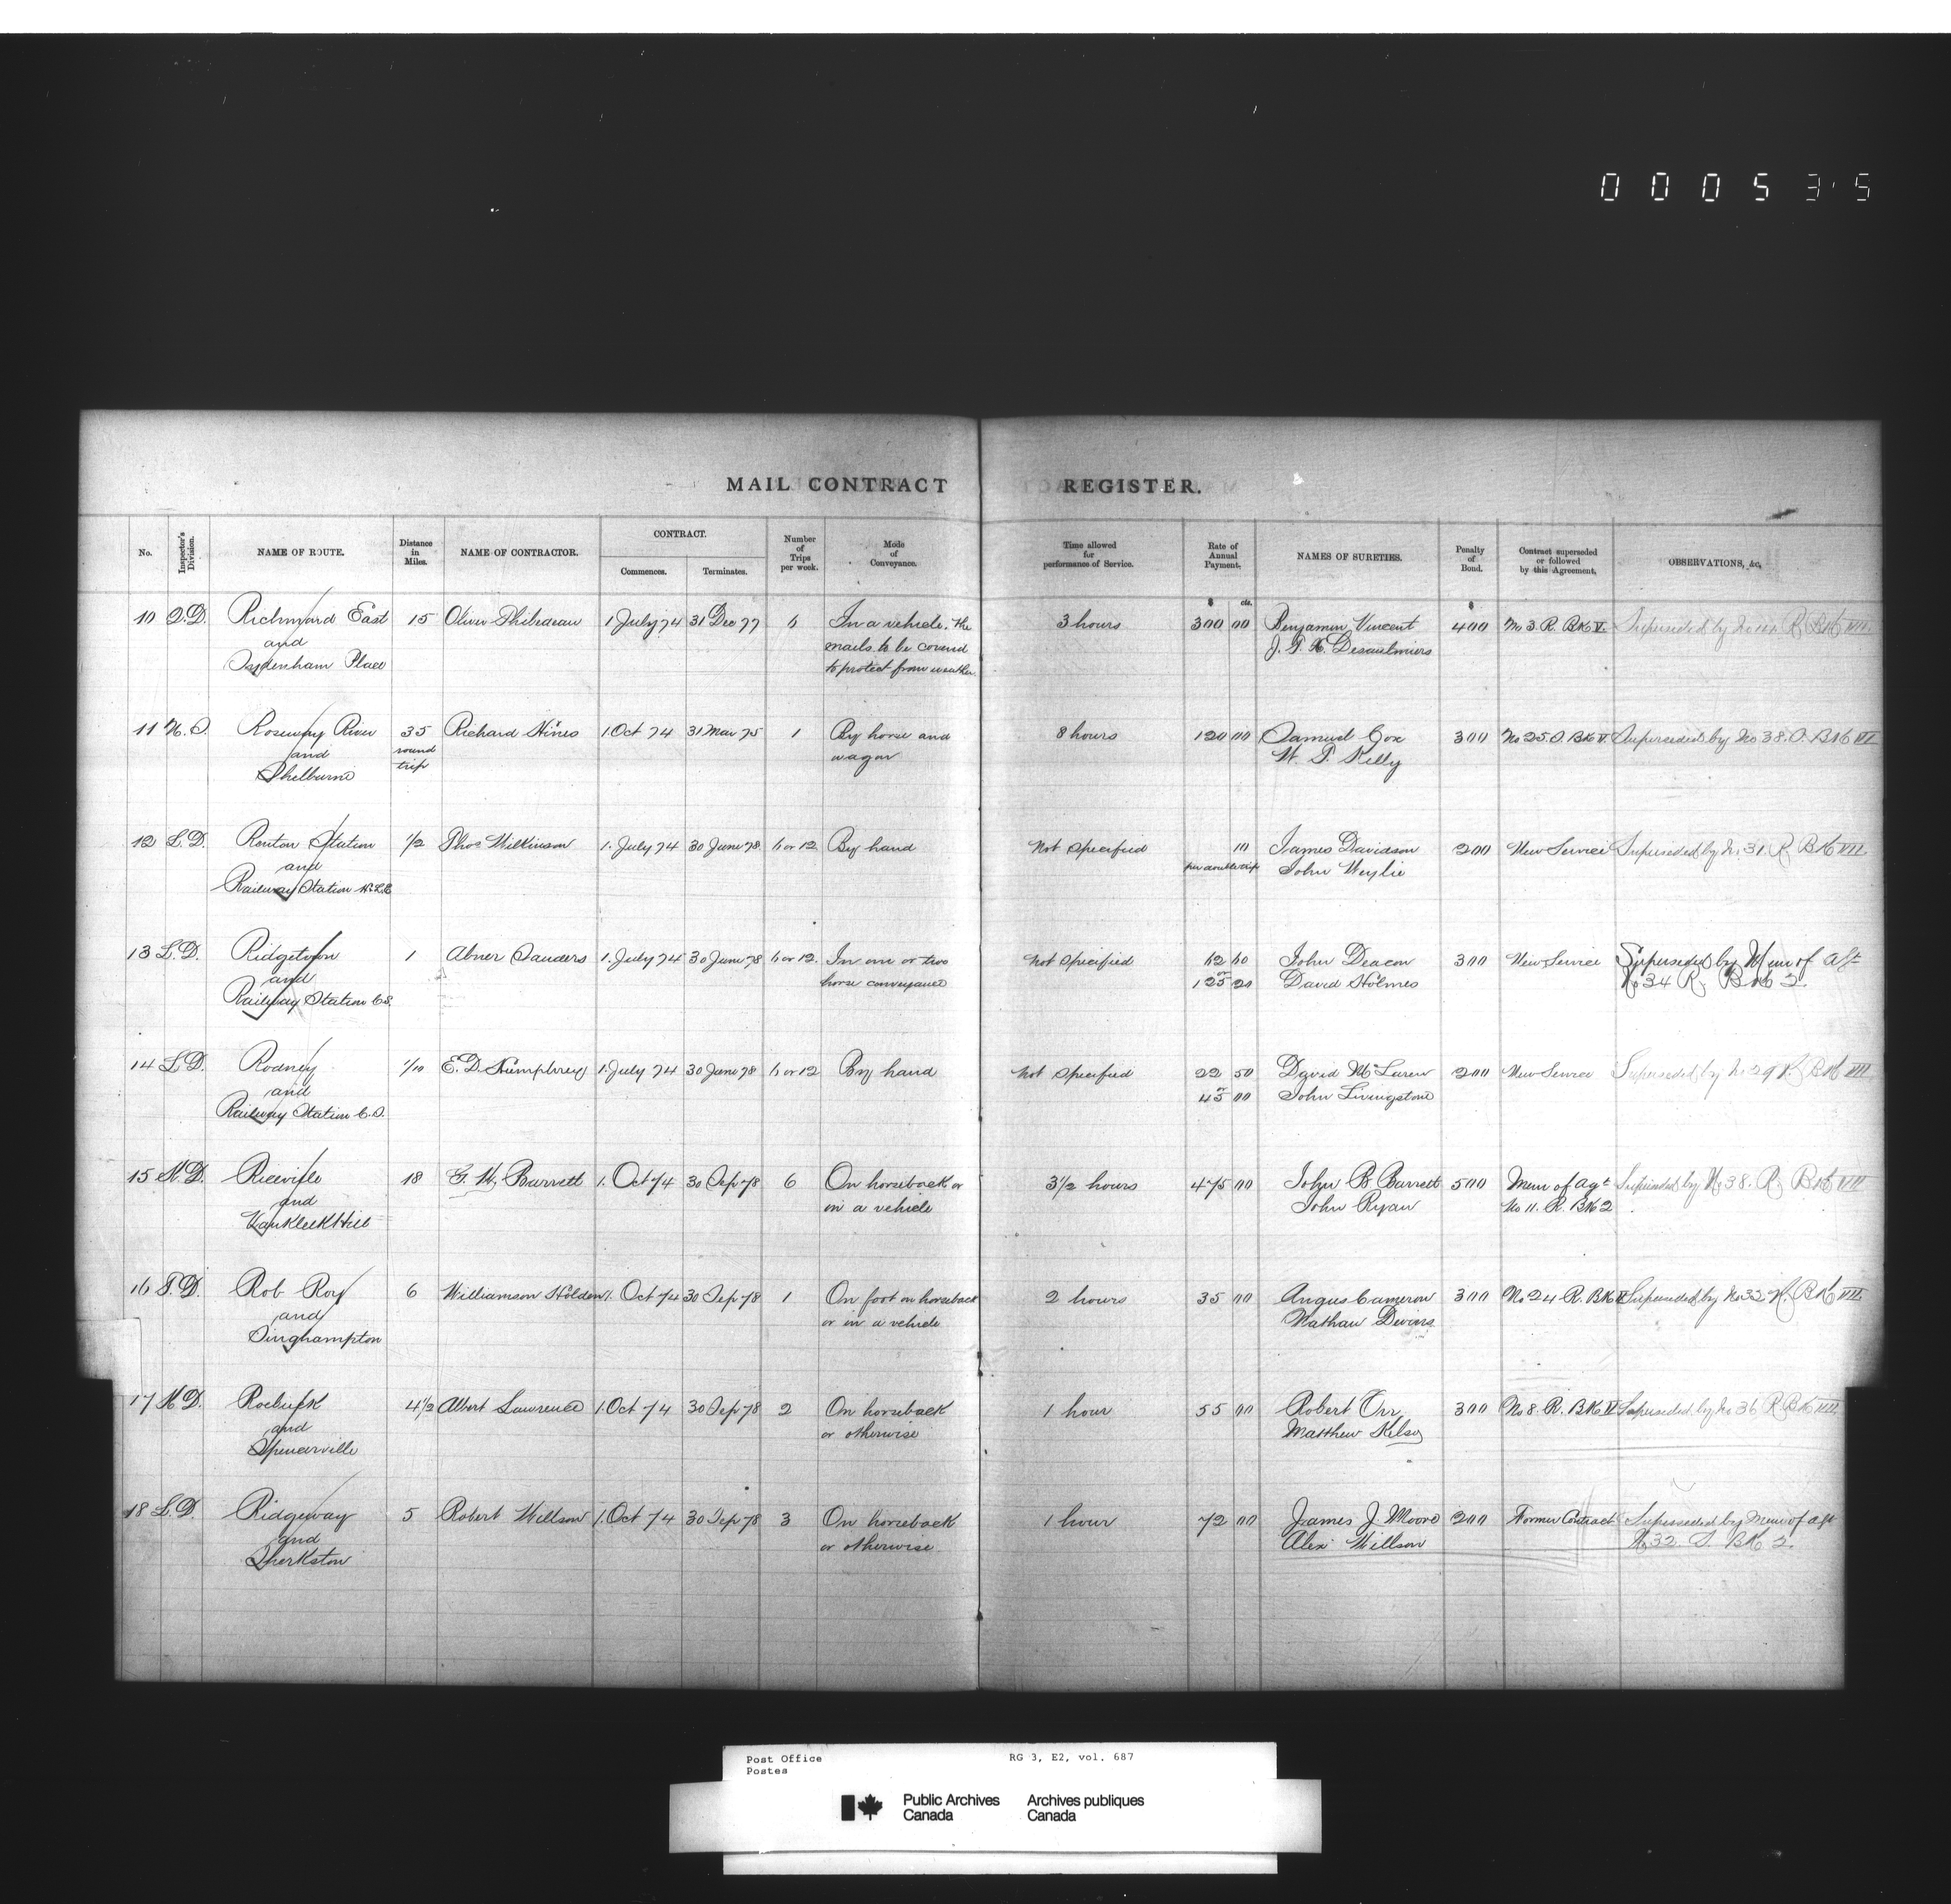 0 0 0 5 3 5
MAIL CONTRACT REGISTER.
No. Inspector's Division. NAME OF ROUTE. Distance in Miles. NAME OF CONTRACTOR. CONTRACT. Commences. Terminates. Number of Trips per week. Mode of Conveyance. Time allowed for performance of Service. Rate of Annual Payment. NAMES OF SURETIES. Penalty of Bond. Contract superseded or followed by this Agreement. OBSERVATIONS, &c.
$ cts. $
10 Q.D. Richmond East 15 Oliver Philadeau 1 July 74 31 Dec 77 6 In a vehicle. the 3 hours 300 00 Benjamin Vincent 400 No 3. R. Bk V. Superseded by No 44 R. Bk VII.
and mails to be covered J. G. H. Desaulniers
Sydenham Place to protect from weather.
11 N.S. Roseway River 35 Richard Hines 1 Oct 74 31 Mar 75 1 By horse and 8 hours 120 00 Samuel Cox 300 No 25 S. Bk V. Superseded by No 38. S. Bk VI
and round wagon W. P. Kelly
Shelburne trip
12 L.D. Renton Station 1/2 Thos Wilkinson 1. July 74 30 June 78 6 or 12 By hand Not Specified 10 James Davidson 200 New Service Superseded by No 31. R. Bk VII
and per double trip John Weylie
Railway Station
13 L.D. Ridgetown 1 Abner Sanders 1. July 74 30 June 78 6 or 12. In one or two Not Specified 62 60 John Deacon 300 New Service Superseded by Mem of Agt
and horse conveyance or 125 20 David Holmes No 34 R. Bk 2.
Railway Station C.S.
14 L.D. Rodney 1/10 E. D. Humphrey 1. July 74 30 June 78 6 or 12 By hand Not Specified 22 50 David McLaren 200 New Service Superseded by No 29 R. Bk VII
and or 45 00 John Livingstone
Railway Station C.S.
15 K.D. Riceville 18 G. W. Barrett 1. Oct 74 30 Sep 78 6 On horseback or 3 1/2 hours 475 00 John B Barrett 500 Mem of Agt Superseded by No 38. R. Bk VII
and in a vehicle John Ryan No 11. R. Bk 2
Vankleek Hill
16 T.D. Rob Roy 6 Williamson Holden 1. Oct 74 30 Sep 78 1 On foot on horseback 2 hours 35 00 Angus Cameron 300 No 24 R. Bk V Superseded by No 32 R. Bk VII
and or in a vehicle Nathan
Singhampton
17 K.D. Roebuck 4 1/2 Albert Lawrence 1. Oct 74 30 Sep 78 2 On horseback 1 hour 55 00 Robert Orr 300 No 8. R. Bk V Superseded by No 36 R. Bk VII.
and or otherwise Matthew Kelso
Spencerville
18 L.D. Ridgeway 5 Robert Willson 1. Oct 74 30 Sep 78 3 On horseback 1 hour 72 00 James J. Moore 200 Former Contract Superseded by Mem of Agt
and or otherwise. Alex Willson No 32. S. Bk 2.
Sherkston
Post Office RG 3, E2, vol. 687
Postes
Public Archives Archives publiques
Canada Canada